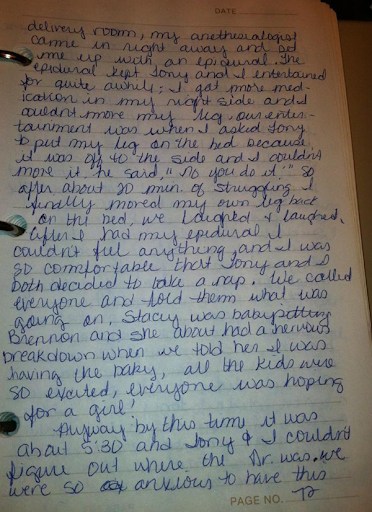 DATE
delivery room, my anethesialogist
came in right away and set
me up with an epidural. The
epidural kept Tony and I entertained
for quite awhile; I got more med-
ication in my right side and I
couldnt move my leg, our enter-
tainment was when I asked Tony
to put my leg on the bed because
it was off to the side and I couldn't
move it, he said, "No you do it." so
after about 20 min. of struggling I
finally moved my own leg back
on the bed, we laughed & laughed.
After I had my epidural I
couldn't feel anything, and I was
so comfortable that Tony and I
both decided to take a nap. We called
everyone and told them what was
going on, Stacy was babysitting
Brennon and she about had a nervous
breakdown when we told her I was
having the baby, all the kids were
so excited, everyone was hoping
for a girl!
Anyway by this time it was
about 5:30 and Tony & I couldn't
figure out where the Dr. was. we
were so anxious to have this
PAGE NO.